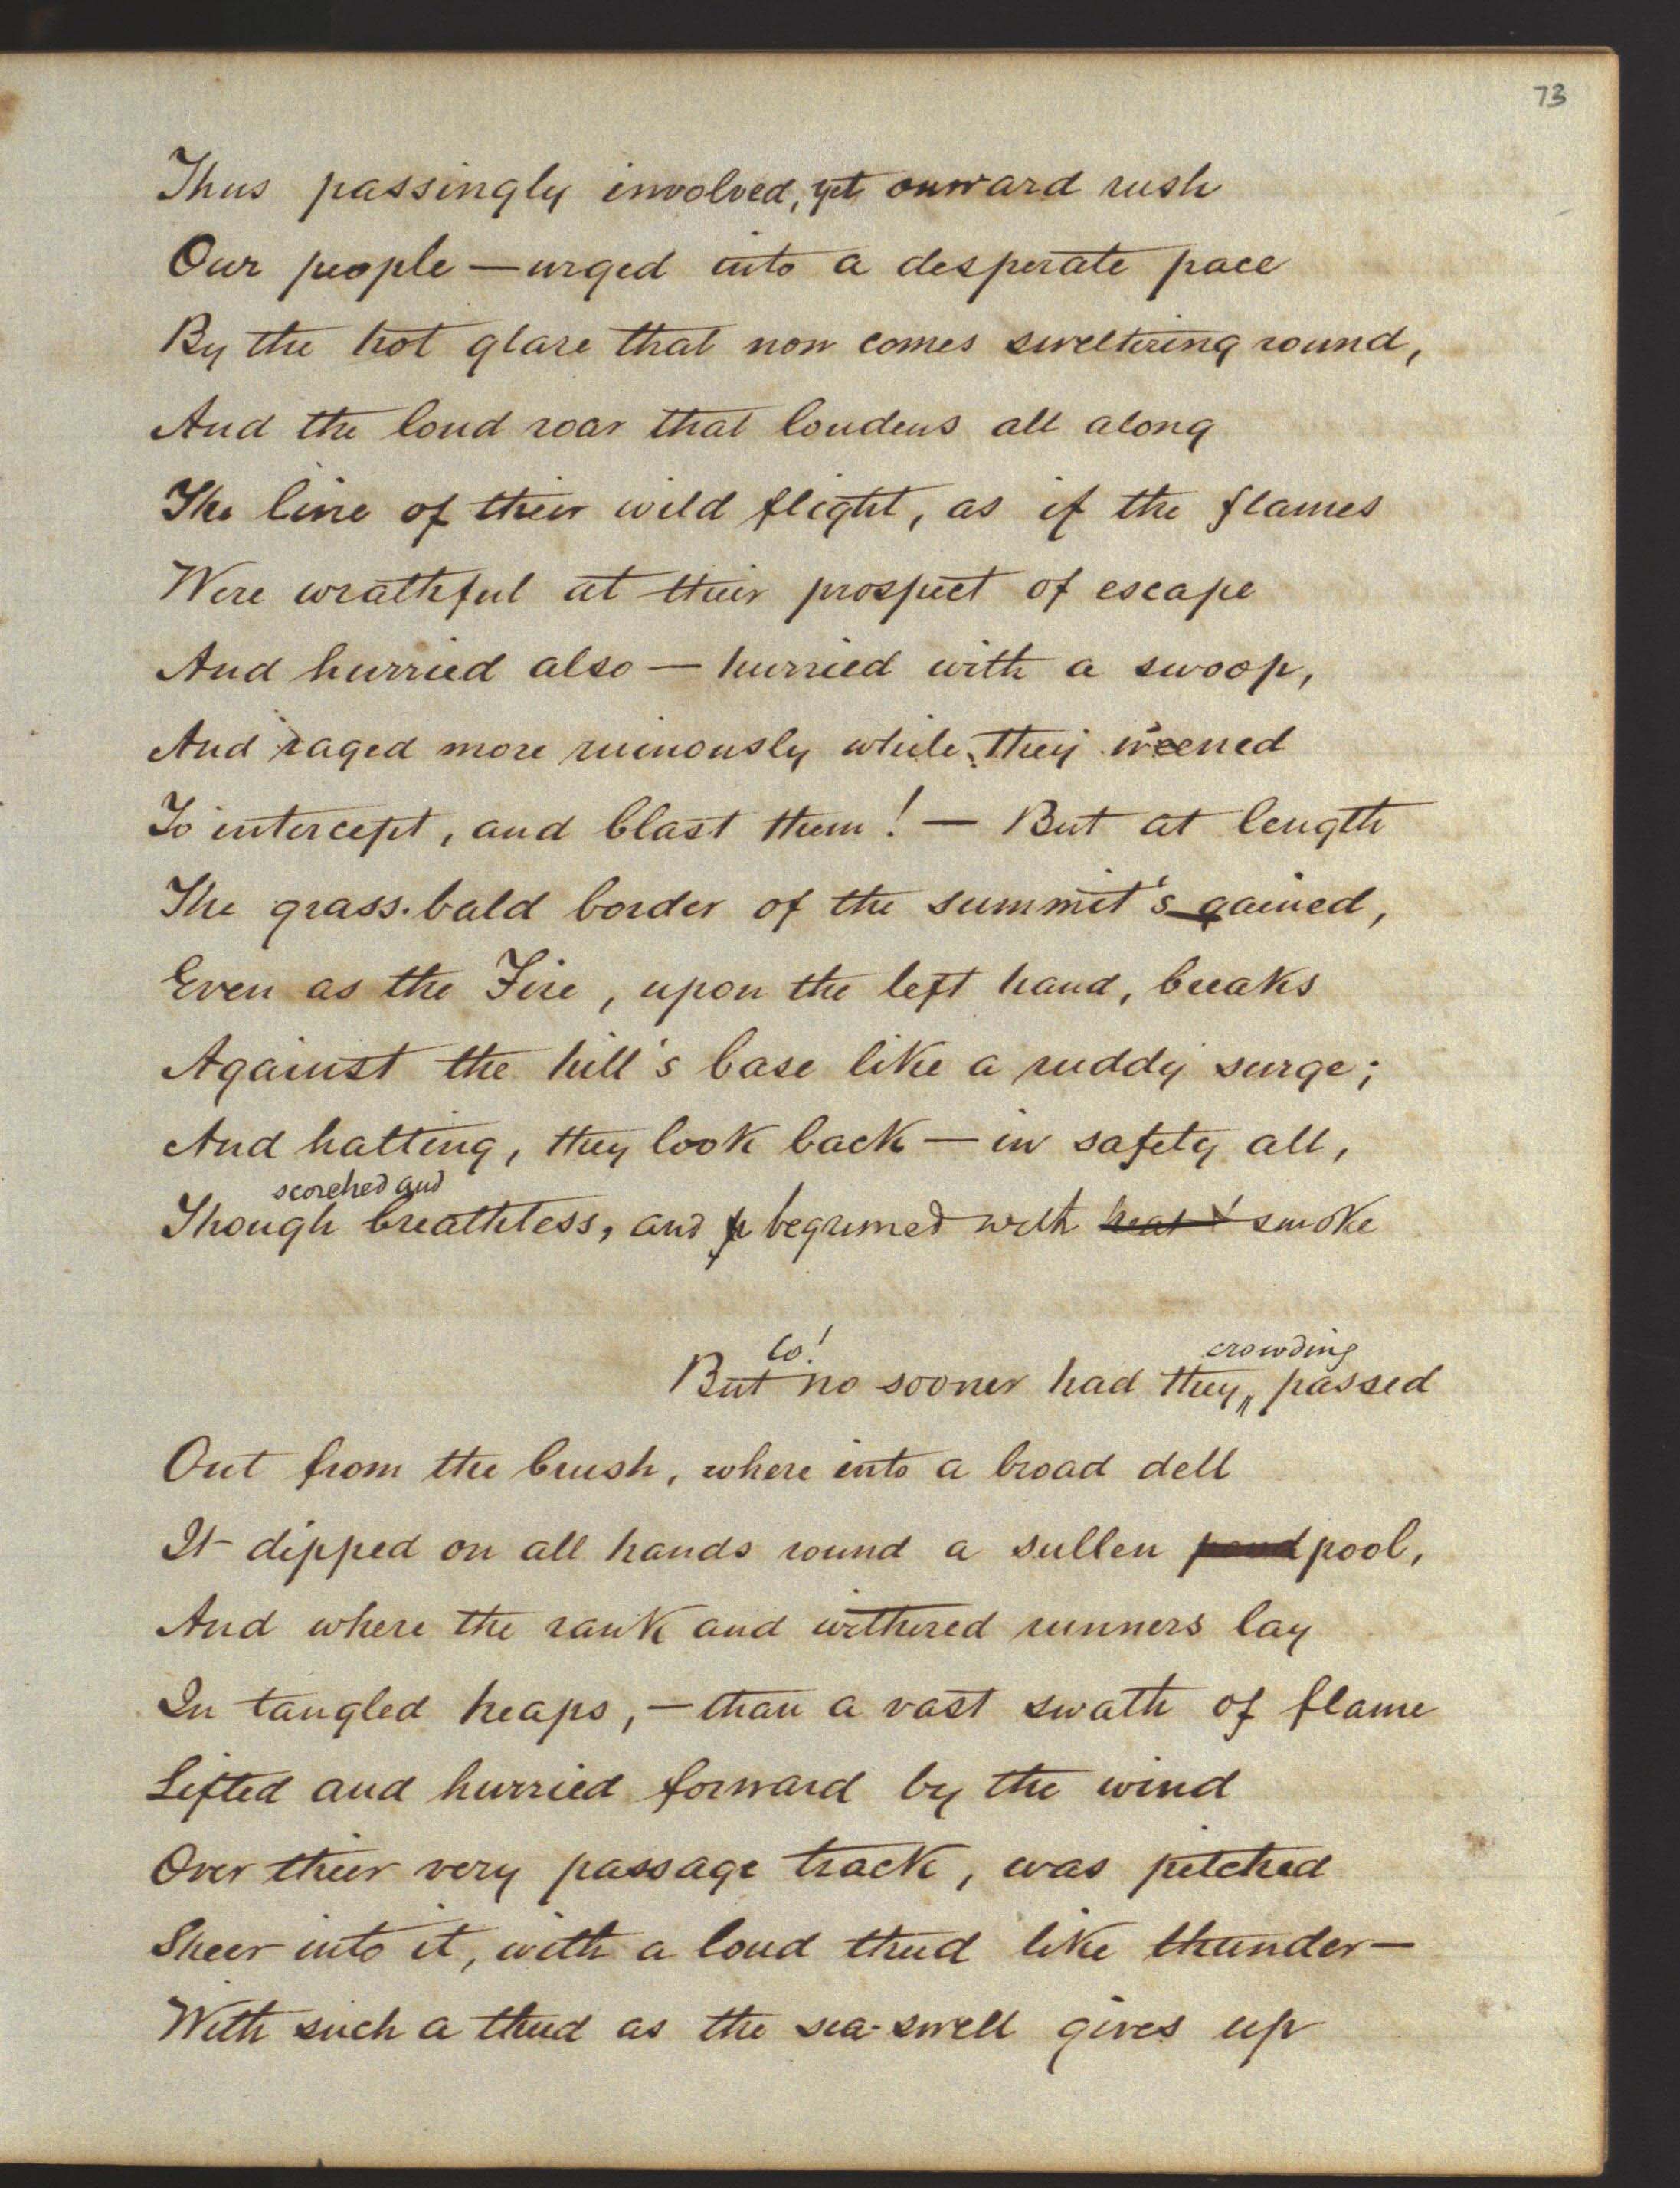 73
Thus passingly involved, yet onward rush
Our people — urged into a desperate pace
By the hot glare that now comes sweltering round,
And the loud roar that loudens all along
The line of their wild flight, as if the flames
Were wrathful at their prospect of escape
And hurried also — hurried with a swoop,
And raged more ruinously while they weened
To intercept, and blast them! — But at length
The grass-bald border of the summit's gained,
Even as the Fire, upon the left hand, breaks
Against the hill's base like a ruddy surge;
And halting, they look back — in safety all,
scorched and
Though breathless, and begrimed with smoke
lo! crowding
But no sooner had they, passed
Out from the brush, where into a broad dell
It dipped on all hands round a sullen pond pool,
And where the rank and withered runners lay
In tangled heaps, — than a vast swath of flame
Lifted and hurried forward by the wind
Over their very passage track, was pitched
Sheer into it, with a loud thud like thunder —
With such a thud as the sea-swell gives up